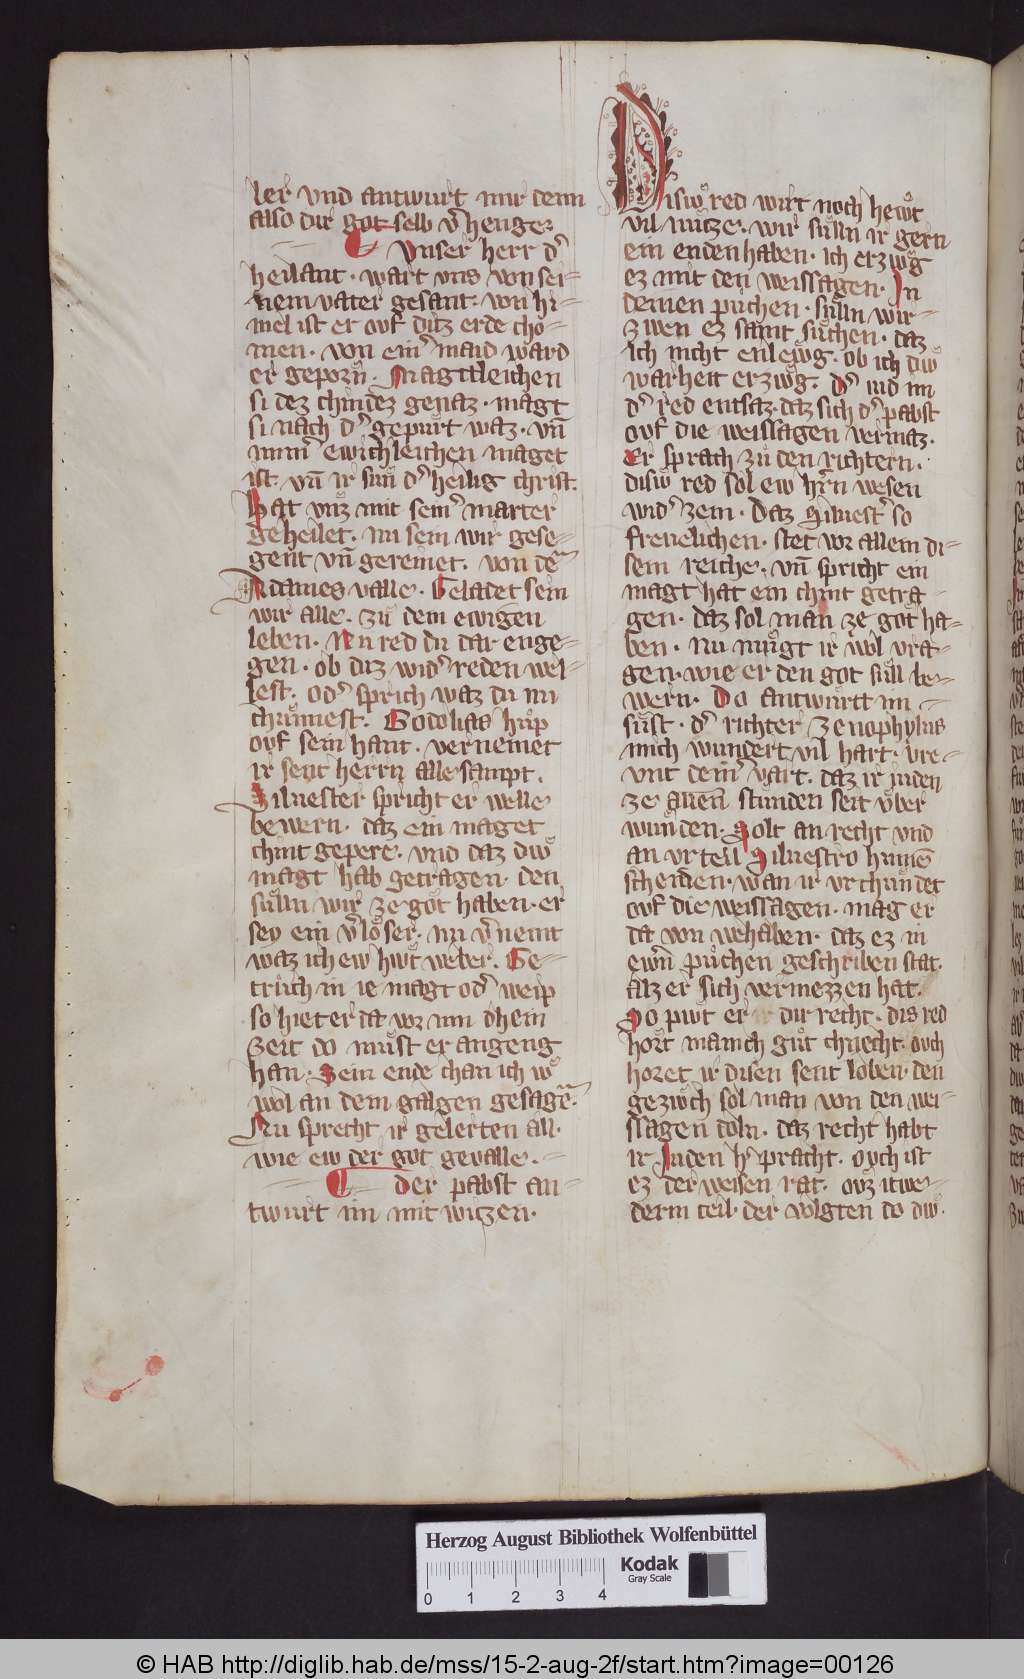 ler vnd antwurt mir denn
also dir got selb v̉henge
Vnser herr d̉
heilant · wart vns von sei-
nem vater gesant · von hi-
mel ist er ovf ditz erde cho-
men · von ein̉ maid ward
er geporn̄ · Magtleichen
si dez chindez genaz · magt
si nach d̉ gepürt waz · vn̄
imm̉ ewichleichen maget
ist · vn̄ ir sun d̉ heilig christ ·
hat vnz mit sein̉ marter
geheilet · nu sein wir gese-
gent vn̄ gereinet · von dem̄
Adames valle · Geladet sein
wir alle · zu dem ewigen
leben · Nu red du dar enge-
gen · ob duz wid̉ reden wel-
lest · od̉ sprich waz du nu
chrümest · Godolias hůp
ovf sein hant · vernemet
ir seyt herrn alle sampt ·
Siluester spricht er welle
bewern · daz ein maget
chint gepere · vnd daz diwͦ
magt hab getragen · den
sülln wir ze got haben · er
sey ein v̉löser · nu v̉nemt
waz ich ew hiwt weber · Ge-
trůch in ie magt od̉ weip
so hiet er da vor nin dhein
zeit do mͤust er angeng
han · Sein ende chan ich wͦ
wol an dem galgen gesagen̄ ·
Nu sprecht ir gelerten all ·
wie ew der got gevalle ·
der pabst an-
twurt im mit witzen ·
Disiwͦ red wirt noch hewͦt
vil nütze · wir sülln ir gern
ein enden haben · ich erziwg
ez mit den weissagen · In
deinen puchen · sülln wir-
zwen ez samt süchen · daz
ich nicht enlewg · ob ich diwͦ
warheit erziwg · d̉ iud im
d̉ red entsaz · daz sich d̉ pabst
ovf die weissagen vermaz ·
Er sprach zů den richtern ·
disiwͦ red sol ew hr̄n wesen
wid̉ zem · Daz Siluest̉ so
freuelichen · stet vor allem di-
sem reiche · vn̄ spricht ein
magt hat ein chint getra-
gen · daz sol man ze got ha-
ben · nu mügt ir wol vra-
gen · wie er den got süll be-
wern · Do antwurtt im
sust · d̉ richter Zenophylus
mich wundert vil hart · vre-
vnt dein̉ vart · daz ir iuden
ze allen stunden seit v̊ber
wunden · Solt an recht vnd
an vrteil Siluestro hinnen̄
scheiden · wan ir vrchündet
ovf die weissagen · mag er
da von wehaben · daz ez in
ewrn̄ půchen geschriben stat ·
alz er sich vermezzen hat ·
So piwt er dir recht · dis red
hort manich gůt chnecht · ovch
horet ir disen seyt loben · den
geziwch sol man von den wei-
ssagen doln · daz recht habt
ir Iuden h̉ pracht · ovch ist
ez der weisen rat · ovz itwe-
derm teil · der volgten do diwͦ
Herzog August Bibliothek Wolfenbüttel
Kodak
Gray Scale
0 1 2 3 4
© HAB http://diglib.hab.de/mss/15-2-aug-2f/start.htm?image=00126